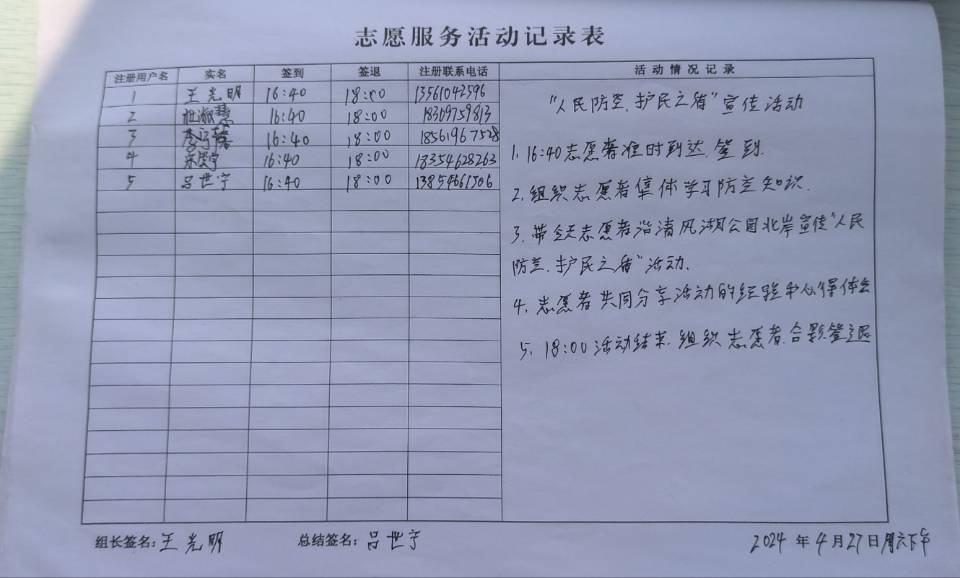 志愿服务活动记录表
注册用户名 实名 签到 签退 注册联系电话 活动情况记录
1 王光明 16:40 18:00 13561042596
2 16:40 18:00 18309759813
3 16:40 18:00 18561967528
4 16:40 18:00 18354628263
5 吕世宁 16:40 18:00 13854661506
“人民防空、护民之盾”宣传活动
1、16:40志愿者准时到达、签到.
2、组织志愿者集体学习防空知识.
3、带领志愿者沿清风湖公园北岸宣传“人民
防空、护民之盾”活动.
4、志愿者共同分享活动的经验和心得体会
5、18:00活动结束、组织志愿者合影签退
组长签名:王光明 总结签名:吕世宁 2024年4月27日周六下午